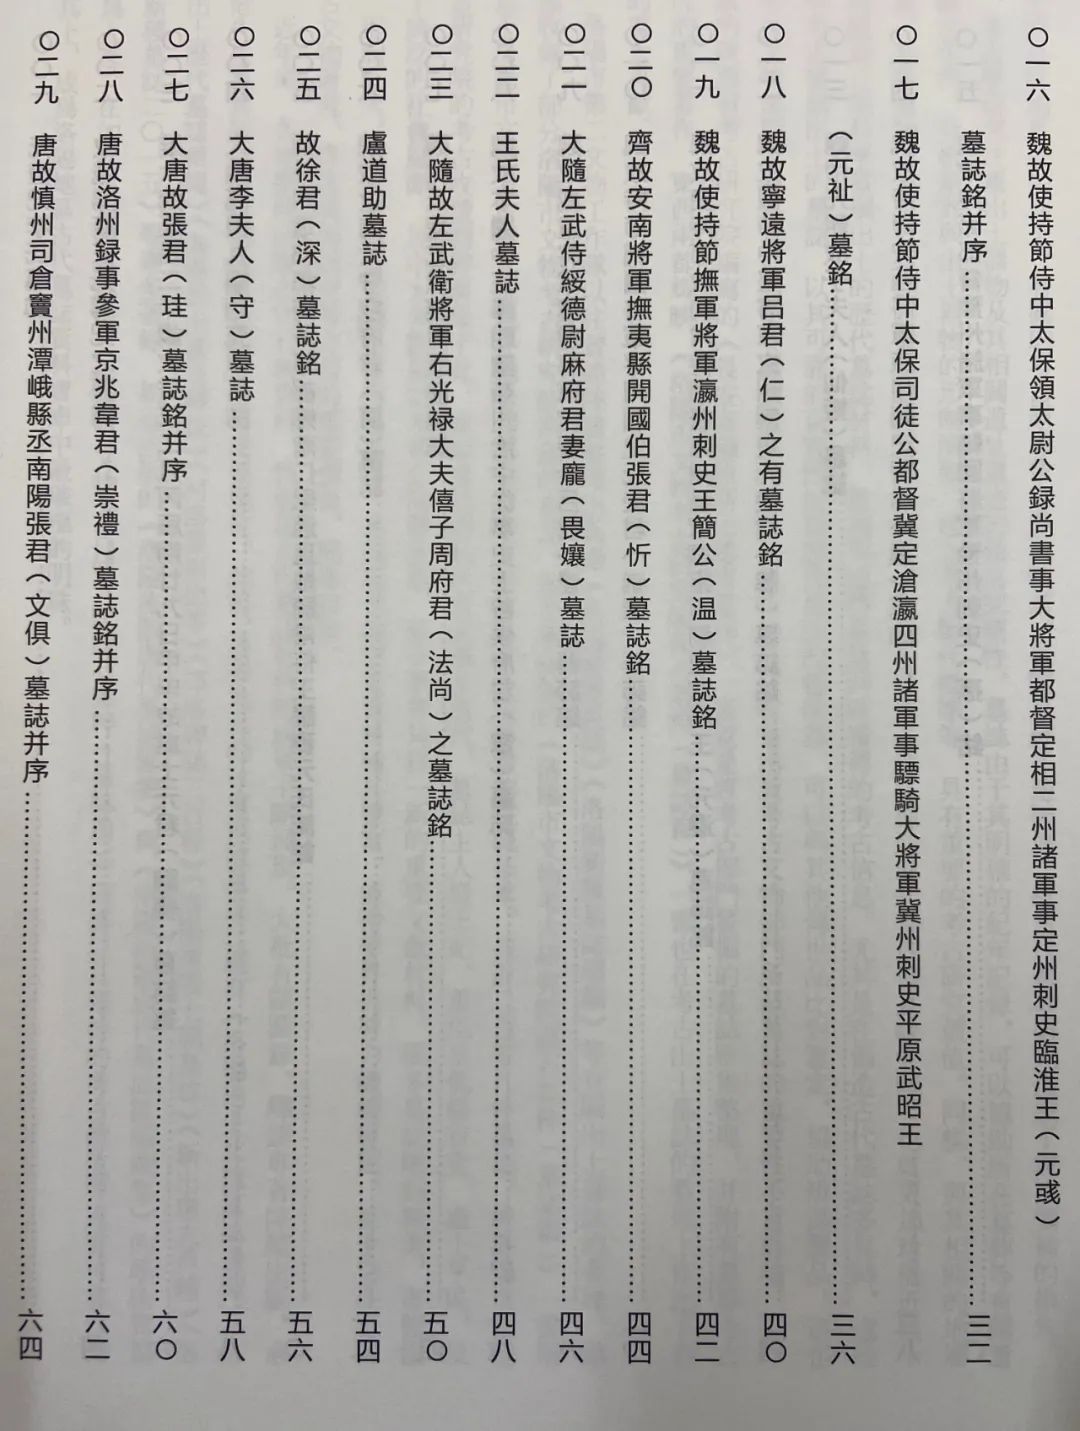 〇一六　魏故使持節侍中太保領太尉公録尚書事大將軍都督定相二州諸軍事定州刺史臨淮王（元彧）
墓誌銘并序……三二
〇一七　魏故使持節侍中太保司徒公都督冀定滄瀛四州諸軍事驃騎大將軍冀州刺史平原武昭王
（元祉）墓銘……三六
〇一八　魏故寧遠將軍吕君（仁）之有墓誌銘……四〇
〇一九　魏故使持節撫軍將軍瀛州刺史王簡公（温）墓誌銘……四二
〇二〇　齊故安南將軍撫夷縣開國伯張君（忻）墓誌銘……四四
〇二一　大隨左武侍綏德尉麻府君妻龐（畏孃）墓誌……四六
〇二二　王氏夫人墓誌……四八
〇二三　大隨故左武衛將軍右光禄大夫僖子周府君（法尚）之墓誌銘……五〇
〇二四　盧道助墓誌……五四
〇二五　故徐君（深）墓誌銘……五六
〇二六　大唐李夫人（守）墓誌……五八
〇二七　大唐故張君（珪）墓誌銘并序……六〇
〇二八　唐故洛州録事參軍京兆韋君（崇禮）墓誌銘并序……六二
〇二九　唐故慎州司倉竇州潭峨縣丞南陽張君（文俱）墓誌并序……六四